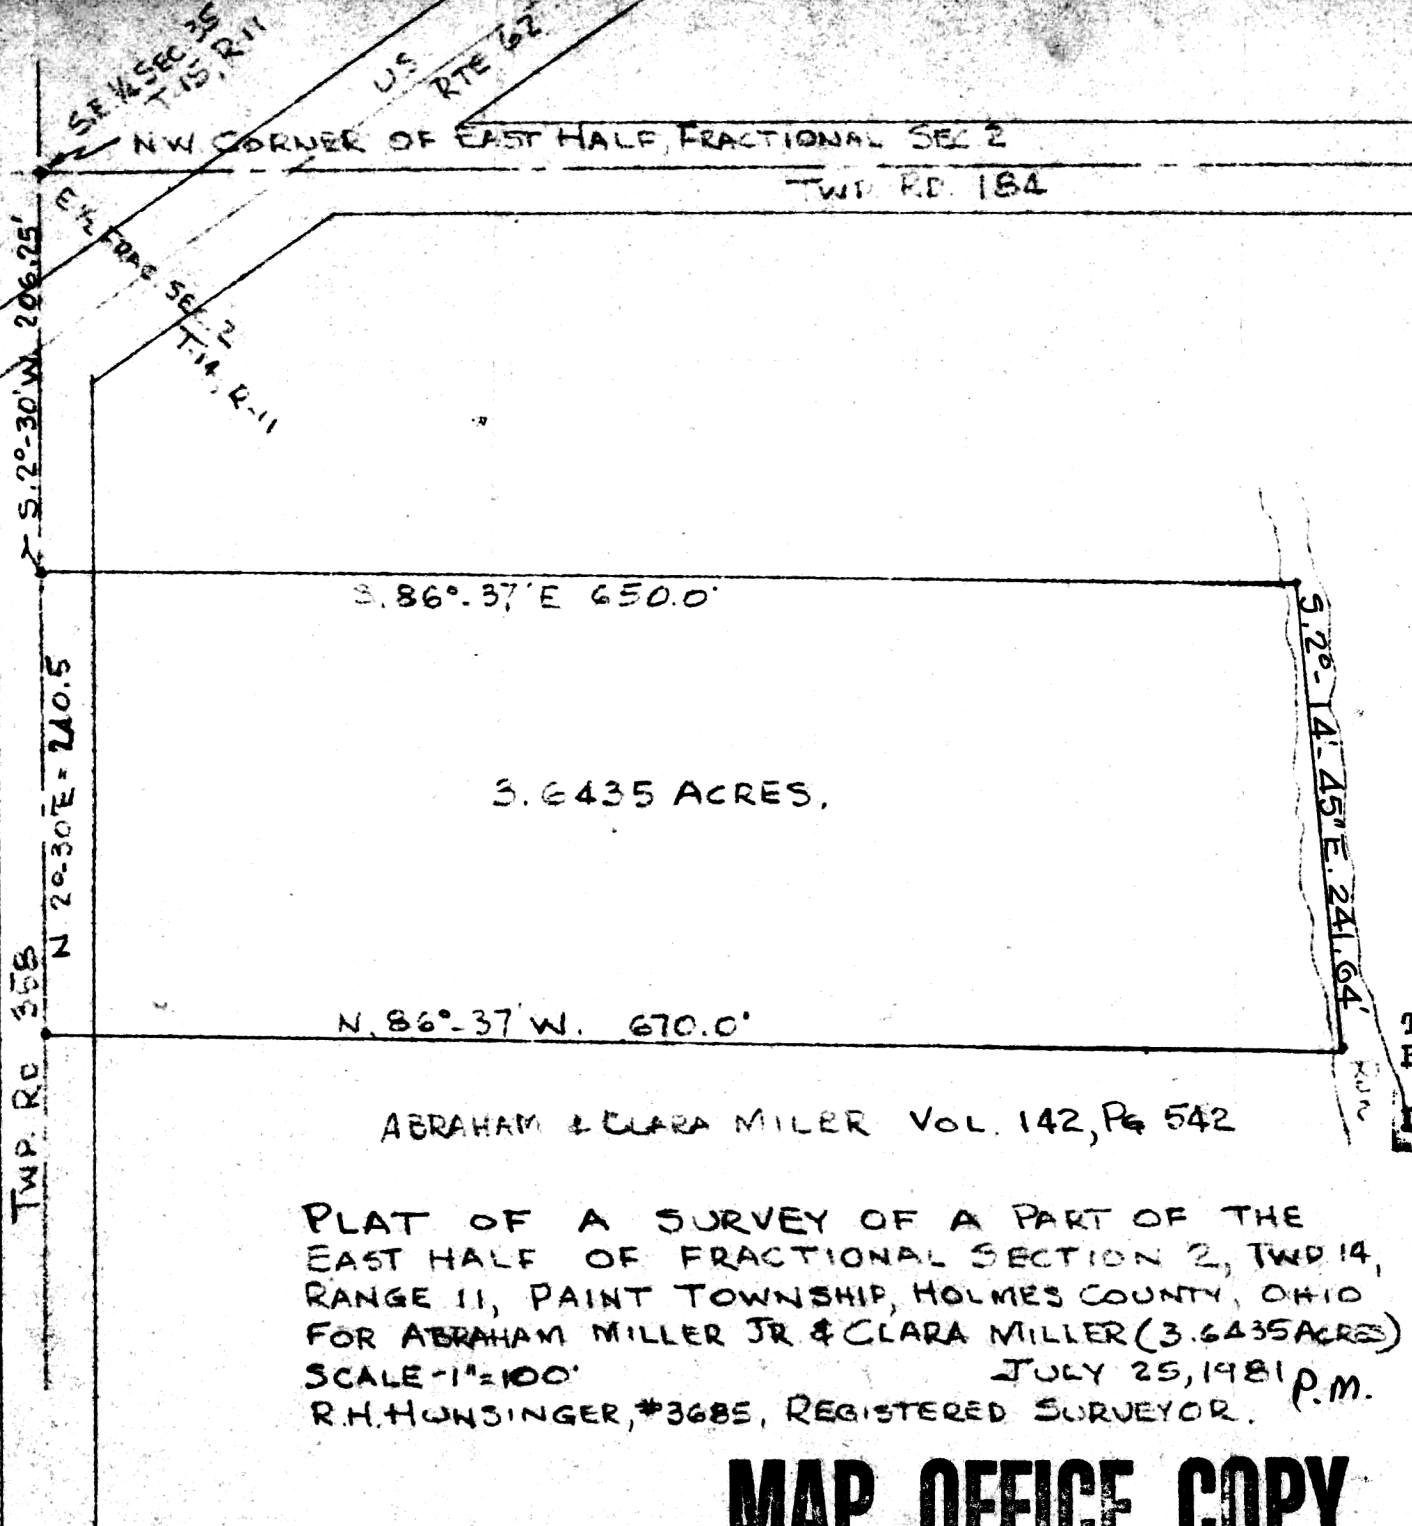 S.E. ¼ SEC 35
T-15, R-11
US
RTE 62
N.W. CORNER OF EAST HALF, FRACTIONAL SEC 2
TWP. RD. 184
E ½ FRAC. SEC. 2
T-14, R-11
S. 2°-30' W. 206.25'
S. 86°-37' E 650.0'
S. 2°-14'-45" E. 241.64'
N 2°-30' E = 240.5
3.6435 ACRES.
TWP. RD 358
N. 86°-37' W. 670.0'
RUN
ABRAHAM & CLARA MILLER VOL. 142, PG 542
PLAT OF A SURVEY OF A PART OF THE
EAST HALF OF FRACTIONAL SECTION 2, TWP 14,
RANGE 11, PAINT TOWNSHIP, HOLMES COUNTY, OHIO
FOR ABRAHAM MILLER JR & CLARA MILLER (3.6435 ACRES)
SCALE-1"=100'
JULY 25, 1981 P.M.
R.H. HUNSINGER, #3685, REGISTERED SURVEYOR.
MAP OFFICE COPY